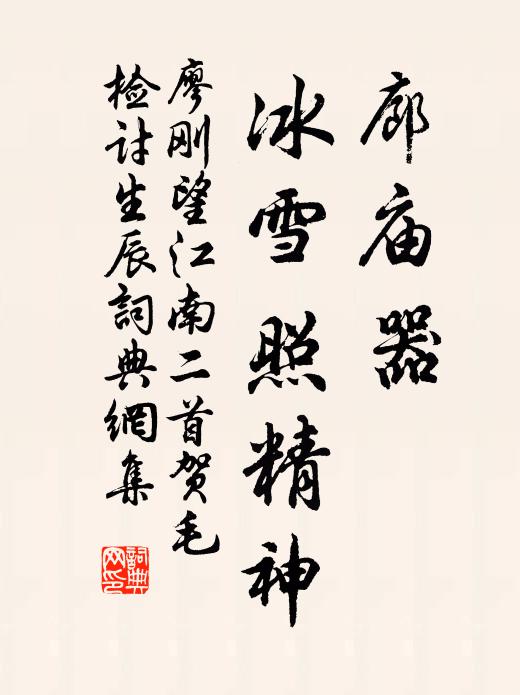 廊庙器
冰雪照精神
廖刚望江南二首贺毛
检讨生辰詞典網集
詞典网印